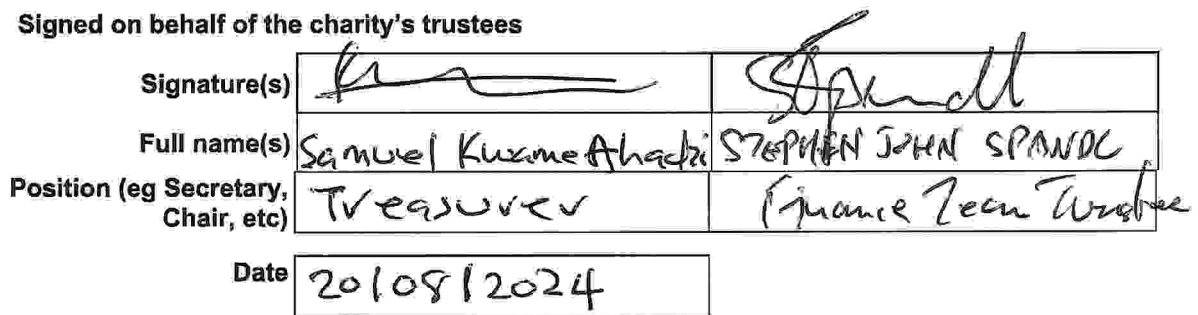 Signed on behalf of the charity's trustees
Signature(s)
Full name(s) Samuel Kwame Ahadzi STEPHEN JOHN SPANDL
Position (eg Secretary,
Chair, etc) Treasurer Finance Team Trustee
Date 20/08/2024